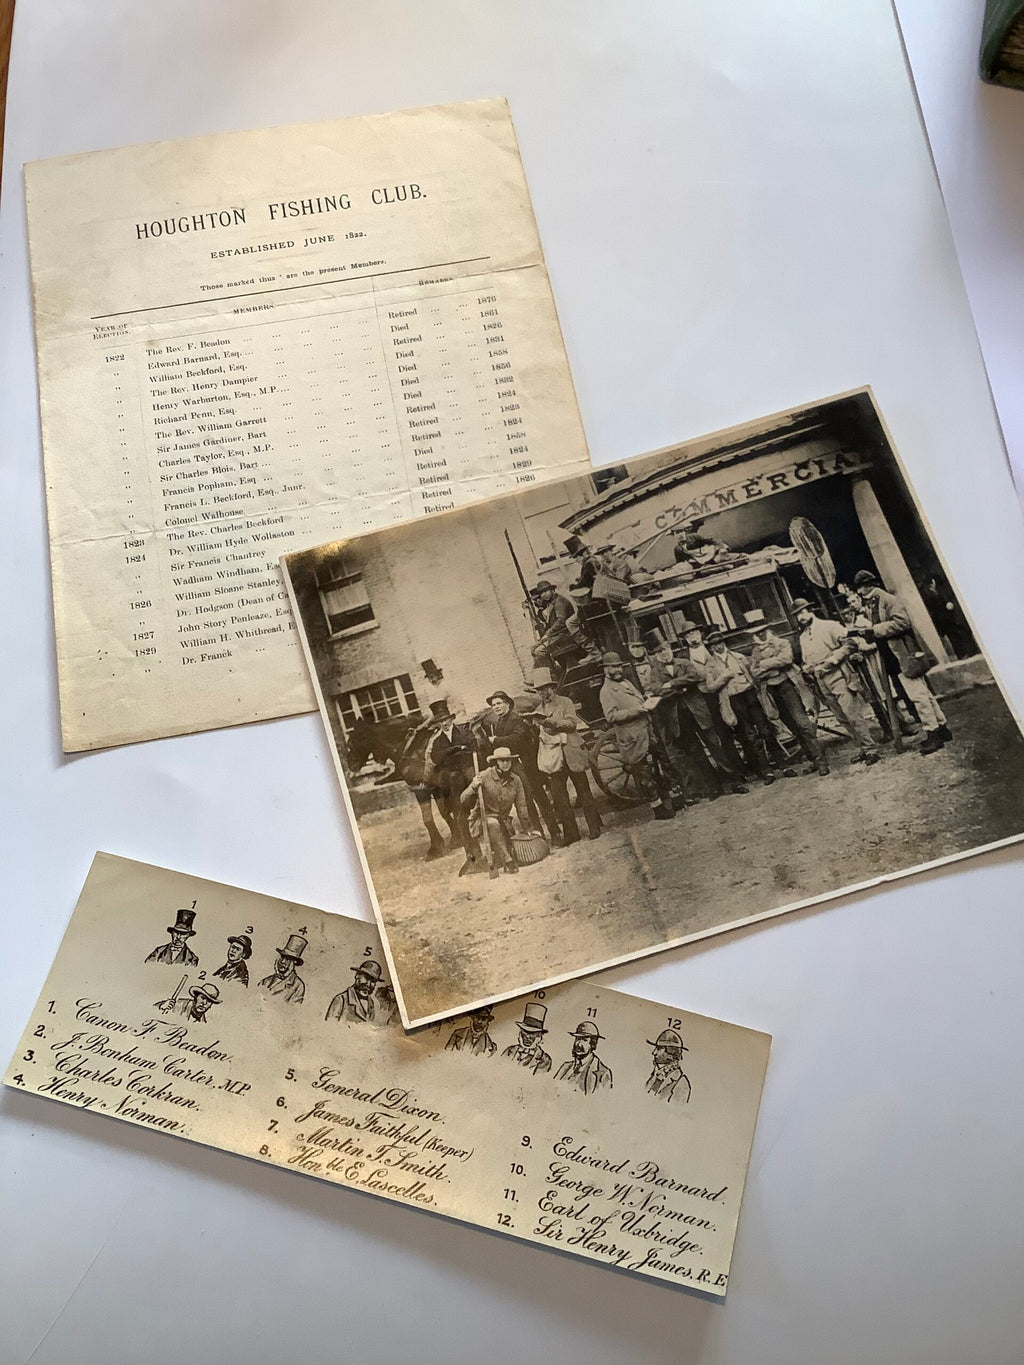 HOUGHTON FISHING CLUB.
ESTABLISHED JUNE 1822.
Those marked thus * are the present Members.
YEAR OF ELECTION. MEMBERS. REMARKS.
1822 The Rev. F. Beadon ... ... ... ... Retired ... ... 1876
" Edward Barnard, Esq. ... ... ... ... Died ... ... 1861
" William Beckford, Esq. ... ... ... Retired ... ... 1826
" The Rev. Henry Dampier ... ... ... Died ... ... 1831
" Henry Warburton, Esq., M.P.... ... ... Died ... ... 1858
" Richard Penn, Esq. ... ... ... ... Died ... ... 1856
" The Rev. William Garrett ... ... ... Died ... ... 1832
" Sir James Gardiner, Bart ... ... ... Retired ... ... 1824
" Charles Taylor, Esq., M.P. ... ... ... Retired ... ... 1823
" Sir Charles Blois, Bart ... ... ... ... Retired ... ... 1824
" Francis Popham, Esq ... ... ... ... Died ... ... 1858
" Francis L. Beckford, Esq., Junr. ... ... Retired ... ... 1824
" Colonel Walhouse ... ... ... ... Retired ... ... 1829
1823 The Rev. Charles Beckford ... ... Retired ... ... 1826
1824 Dr. William Hyde Wollaston ...
" Sir Francis Chantrey ...
" Wadham Windham, Es
1826 William Sloane Stanley,
" Dr. Hodgson (Dean of Ca
1827 John Story Penleaze, Esq
1829 William H. Whitbread, E
" Dr. Franck ... ...
COMMERCIA
1
3
4
5
2
10
11
12
1. Canon F. Beadon.
2. J. Bonham Carter, M.P.
3. Charles Corkran.
4. Henry Norman.
5. General Dixon.
6. James Faithful (Keeper)
7. Martin T. Smith.
8. Hon.ble E. Lascelles.
9. Edward Barnard.
10. George W. Norman.
11. Earl of Uxbridge.
12. Sir Henry James, R.E